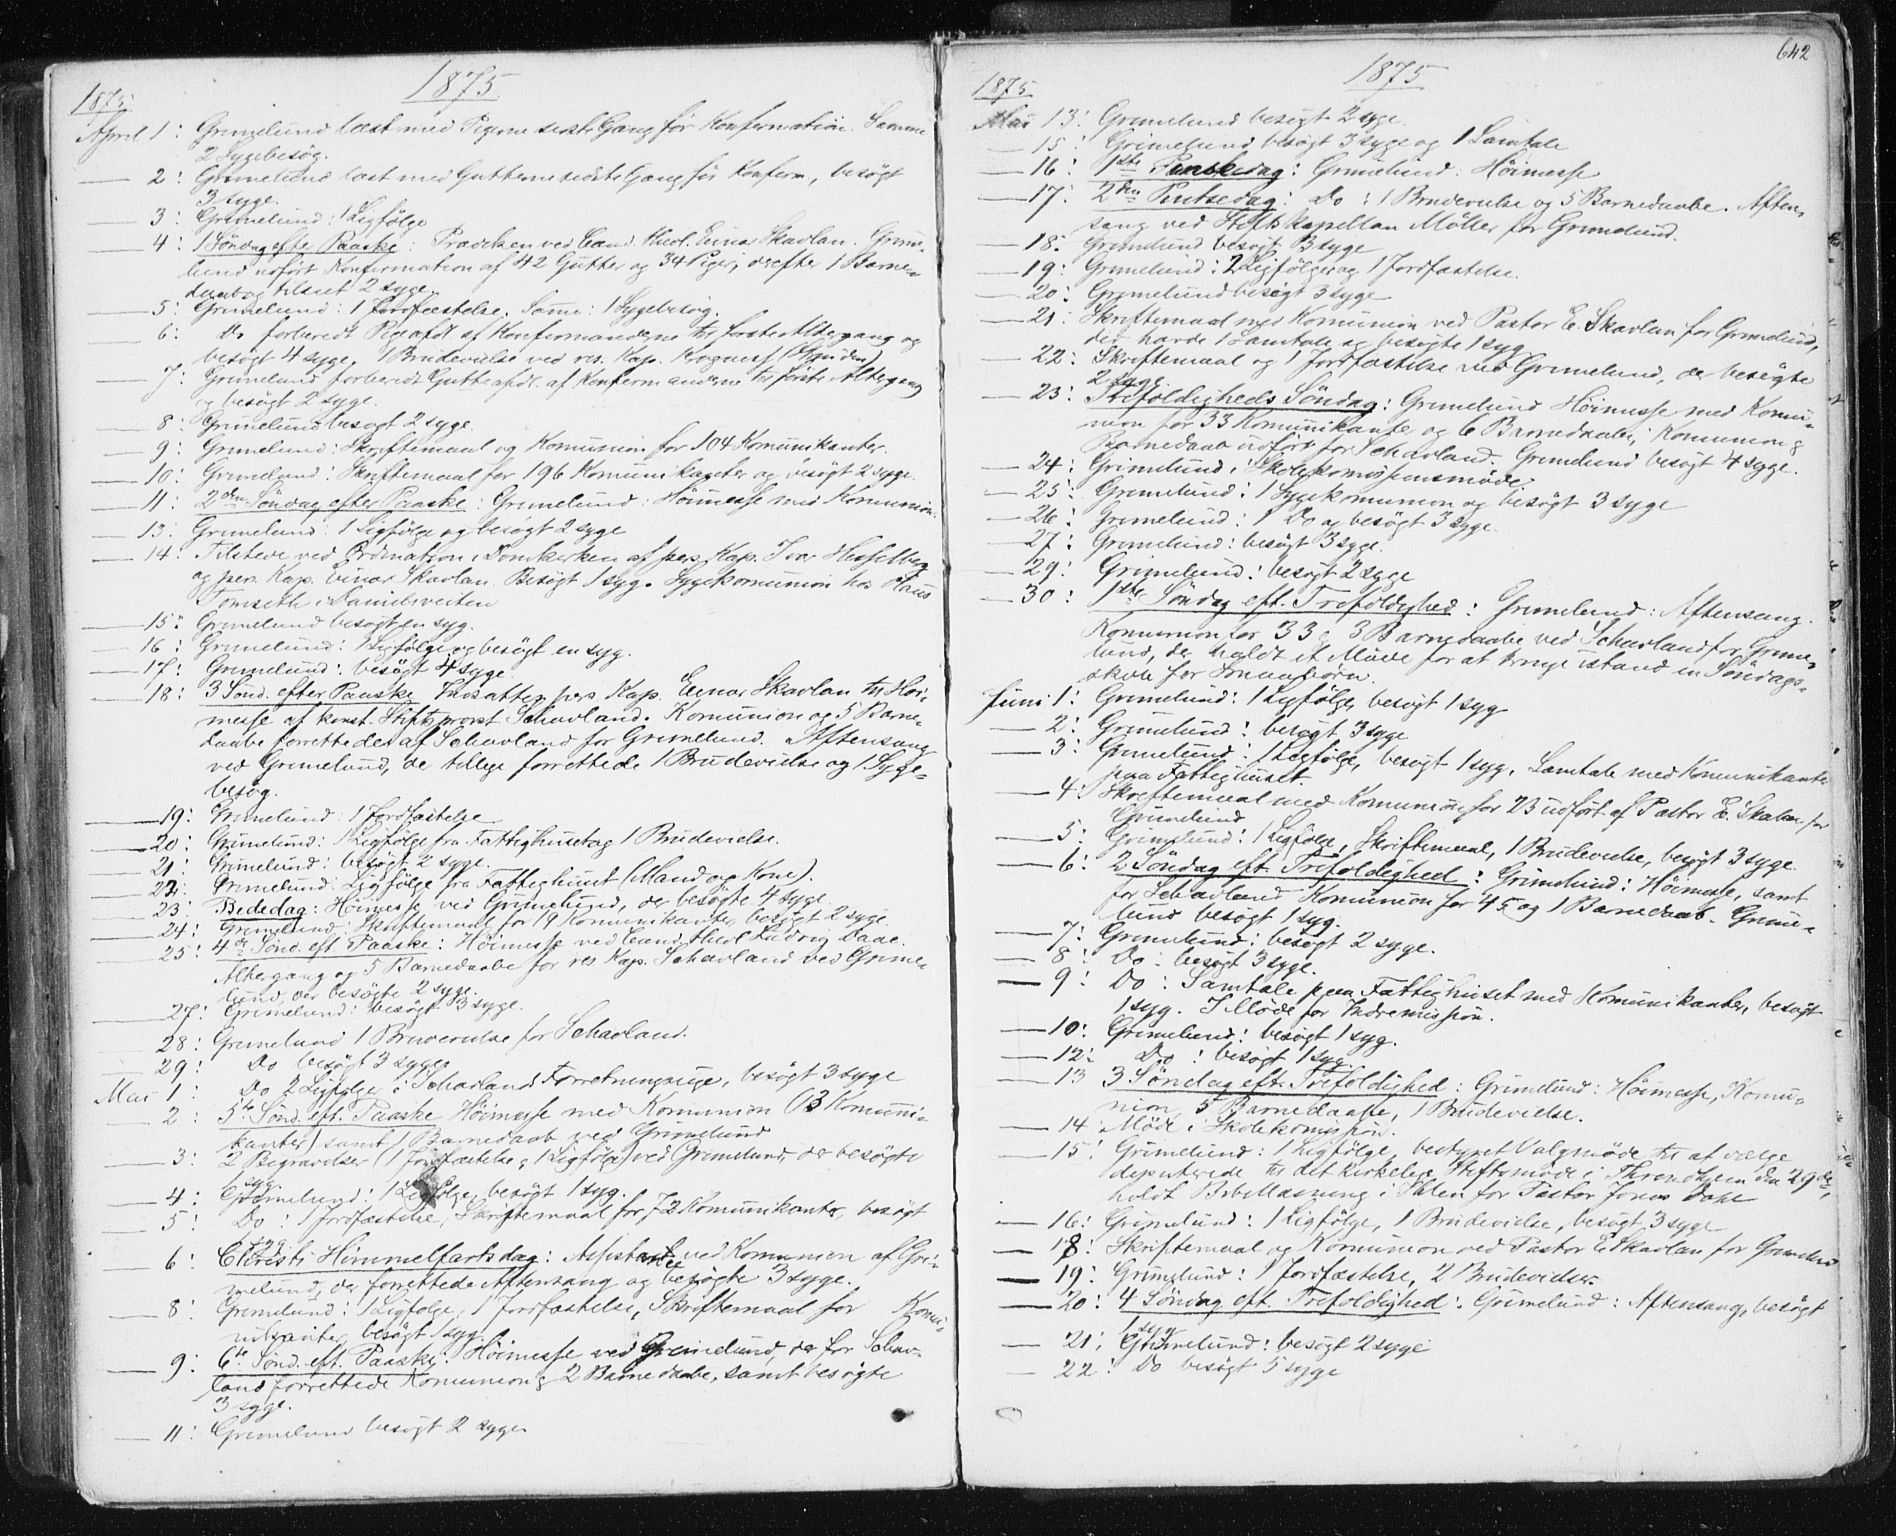 1875
1875.
April 1: Grimelund læst med Pigerne sidste Gang før Konfirmation. Samme
2 Sygebesøg.
2: Grimelund læst med Gutterne sidste Gang før Konfirm, besøgt
3 syge.
3: Grimelund: 1 Ligfølge
4: 1 Søndag efter Paaske: Præd­iken ved Cand. theol. Einar Skavlan. Grime-
lund udført Konfirmation af 42 Gutter og 34 Piger, derefter 1 Barne-
daab og tilset 2 syge.
5: Grimelund: 1 Jordfæstelse. Samme: 1 Sygebesøg.
6: Do forberedt Pigeafdl. af Konfirmanderne til første Altergang og
besøgt 4 syge. 1 Brudevielse ved res. Kap. Rognes
7: Grimelund forberedt Gutteafdl. af Konfirmanderne til første Altergang
og besøgt 2 syge.
8: Grimelund besøgt 2 syge.
9: Grimelund: Skriftemaal og Komunion for 104 Komunikanter.
10: Grimelund: Skriftemaal for 196 Komunikanter og besøgt 2 syge.
11: 2den Søndag efter Paaske: Grimelund: Høimesse med Komunion.
13: Grimelund: 1 Ligfølge og besøgt 2 syge
14: Tilstede ved Ordination i Domkirken af pers. Kap. Ivar Hesselberg
og pers. Kap. Einar Skavlan. Besøgt 1 syg. Sygekomunion hos Hans
Tomseth i Danielsveiten
15: Grimelund besøgt en syg.
16: Grimelund: 1 Ligfølge og besøgt en syg.
17: Grimelund: besøgt 4 syge
18: 3 Sønd. efter Paaske Indsatte pers Kap. Einar Skavlan til Høi-
messe af konst. Stiftsprovst Schavland. Komunion og 5 Barne-
daabe forrettedes af Schavland for Grimelund. Aftensang
ved Grimelund, der tillige forrettede 1 Brudevielse og 1 Syge-
besøg.
19: Grimelund: 1 Jordfæstelse
20: Grimelund: 1 Ligfølge fra Fattighuset og 1 Brudevielse.
21: Grimelund: besøgt 2 syge.
22: Grimelund: Ligfølge fra Fattighuset (Mand og Kone).
23: Bededag: Høimesse ved Grimelund, der besøgte 4 syge.
24: Grimelund: Skriftemaal for 19 Komunikanter, besøgt 2 syge.
25: 4de Sønd. eft Paaske: Høimesse ved Cand. theol Ludvig Daae.
Altergang og 5 Barnedaabe for res Kap. Schavland ved Grime-
lund, der besøgte 2 syge.
27: Grimelund: besøgt 3 syge.
28: Grimelund 1 Brudevielse for Schavland.
29: Do besøgt 3 syge
Mai 1: Do 2 Ligfølge i Schavlands Forretningsuge, besøgt 3 syge
2: 5te Sønd. eft. Paaske Høimesse med Komunion ( Komuni-
kanter) samt 1 Barnedaab ved Grimelund
3: 2 Begravelser (1 Jordfæstelse, 1 Ligfølge) ved Grimelund, der besøgte
syg.
4: Grimelund: 1 Ligfølge, besøgt 1 syg.
5: Do: 1 Jordfæstelse, Skriftemaal for 72 Komunikanter, besøgt
syg
6: Christi Himmelfartsdag: Assisteret ved Komunion af Gri-
melund, der forrettede Aftensang og besøgte 3 syge.
8: Grimelund: 1 Ligfølge, 1 Jordfæstelse, Skriftemaal for Komu-
nikanter, besøgt 1 syg.
9: 6te Sønd. eft. Paaske: Høimesse ved Grimelund, der for Schav-
land forrettede Komunion & 2 Barnedaabe, samt besøgte
3 syge.
11: Grimelund besøgt 2 syge
642
1875
1875.
Mai 13: Grimelund besøgt 2 syge.
15: Grimelund besøgt 3 syge og 1 Samtale
16: 1ste Pinsedag: Grimelund: Høimesse
17: 2den Pintsedag: Do: 1 Brudevielse og 5 Barnedaabe. Aften-
sang ved Stiftskapellan Møller for Grimelund.
18: Grimelund besøgt 3 syge
19: Grimelund: 2 Ligfølge og 1 Jordfæstelse.
20: Grimelund besøgt 3 syge
21: Skriftemaal med Komunion ved Pastor E. Skavlan for Grimelund,
der havde 1 Samtale og besøgte 1 syg
22: Skriftemaal og 1 Jordfæstelse ved Grimelund, der besøgte
2 syge.
23: Trefoldigheds Søndag: Grimelund Høimesse med Komu-
nion for 33 Komunikanter og 6 Barnedaabe; Komunion &
Barnedaab udført for Schavland. Grimelund besøgt 4 syge.
24: Grimelund, Skolekomissionsmøde.
25: Grimelund: 1 Sygekomunion og besøgt 3 syge
26: Grimelund: 1 Do og besøgt 3 syge.
27: Grimelund: besøgt 3 syge.
29: Grimelund: besøgt 2 syge
30: 1ste Søndag eft. Trefoldighed: Grimelund: Aftensang.
Komunion for 33 & 3 Barnedaabe ved Schavland for Grime-
lund, der holdt et Møde for at bringe istand en Søndags-
skole for Smaabørn.
Juni 1: Grimelund: 1 Ligfølge, besøgt 1 syg
2: Grimelund: besøgt 3 syge
3: Grimelund: 1 Ligfølge, besøgt 1 syg, Samtale med Komunikanter
paa Fattighuset.
4: Skriftemaal med Komunion for 23 udført af Pastor E. Skavlan for
Grimelund
5: Grimelund: 1 Ligfølge, Skriftemaal, 1 Brudevielse, besøgt 3 syge
6: 2 Søndag eft. Trefoldighed: Grimelund: Høimesse, samt
for Schavland Komunion for 45 og 1 Barnedaab. Grime-
lund besøgt 1 syg.
7: Grimelund: besøgt 2 syge.
8: Do: besøgt 3 syge.
9: Do: Samtale paa Fattighuset med Komunikanter, besøgt
1 syg. I Møde for Indremission.
10: Grimelund: besøgt 1 syg.
12: Do: besøgt 1 syg
13 3 Søndag eft. Trefoldighed: Grimelund: Høimesse, Komu-
nion, 5 Barnedaabe, 1 Brudevielse.
14 Møde i Skolekomission.
15: Grimelund: 1 Ligfølge, bestyret Valgmøde til at vælge
deputerede til det kirkelige Stiftsmøde i Throndhjem den 29de,
holdt Bibellæsning i Ihlen for Pastor Jonas Dahl
16: Grimelund: 1 Ligfølge, 1 Brudevielse, besøgt 3 syge
18: Skriftemaal og Komunion ved Pastor E. Skavlan for Grimelund
19: Grimelund: 1 Jordfæstelse, 2 Brudevielser
20: 4 Søndag eft. Trefoldighed: Grimelund: Aftensang, besøgt
1 syg
21: Grimelund: besøgt 2 syge
22: Do besøgt 5 syge